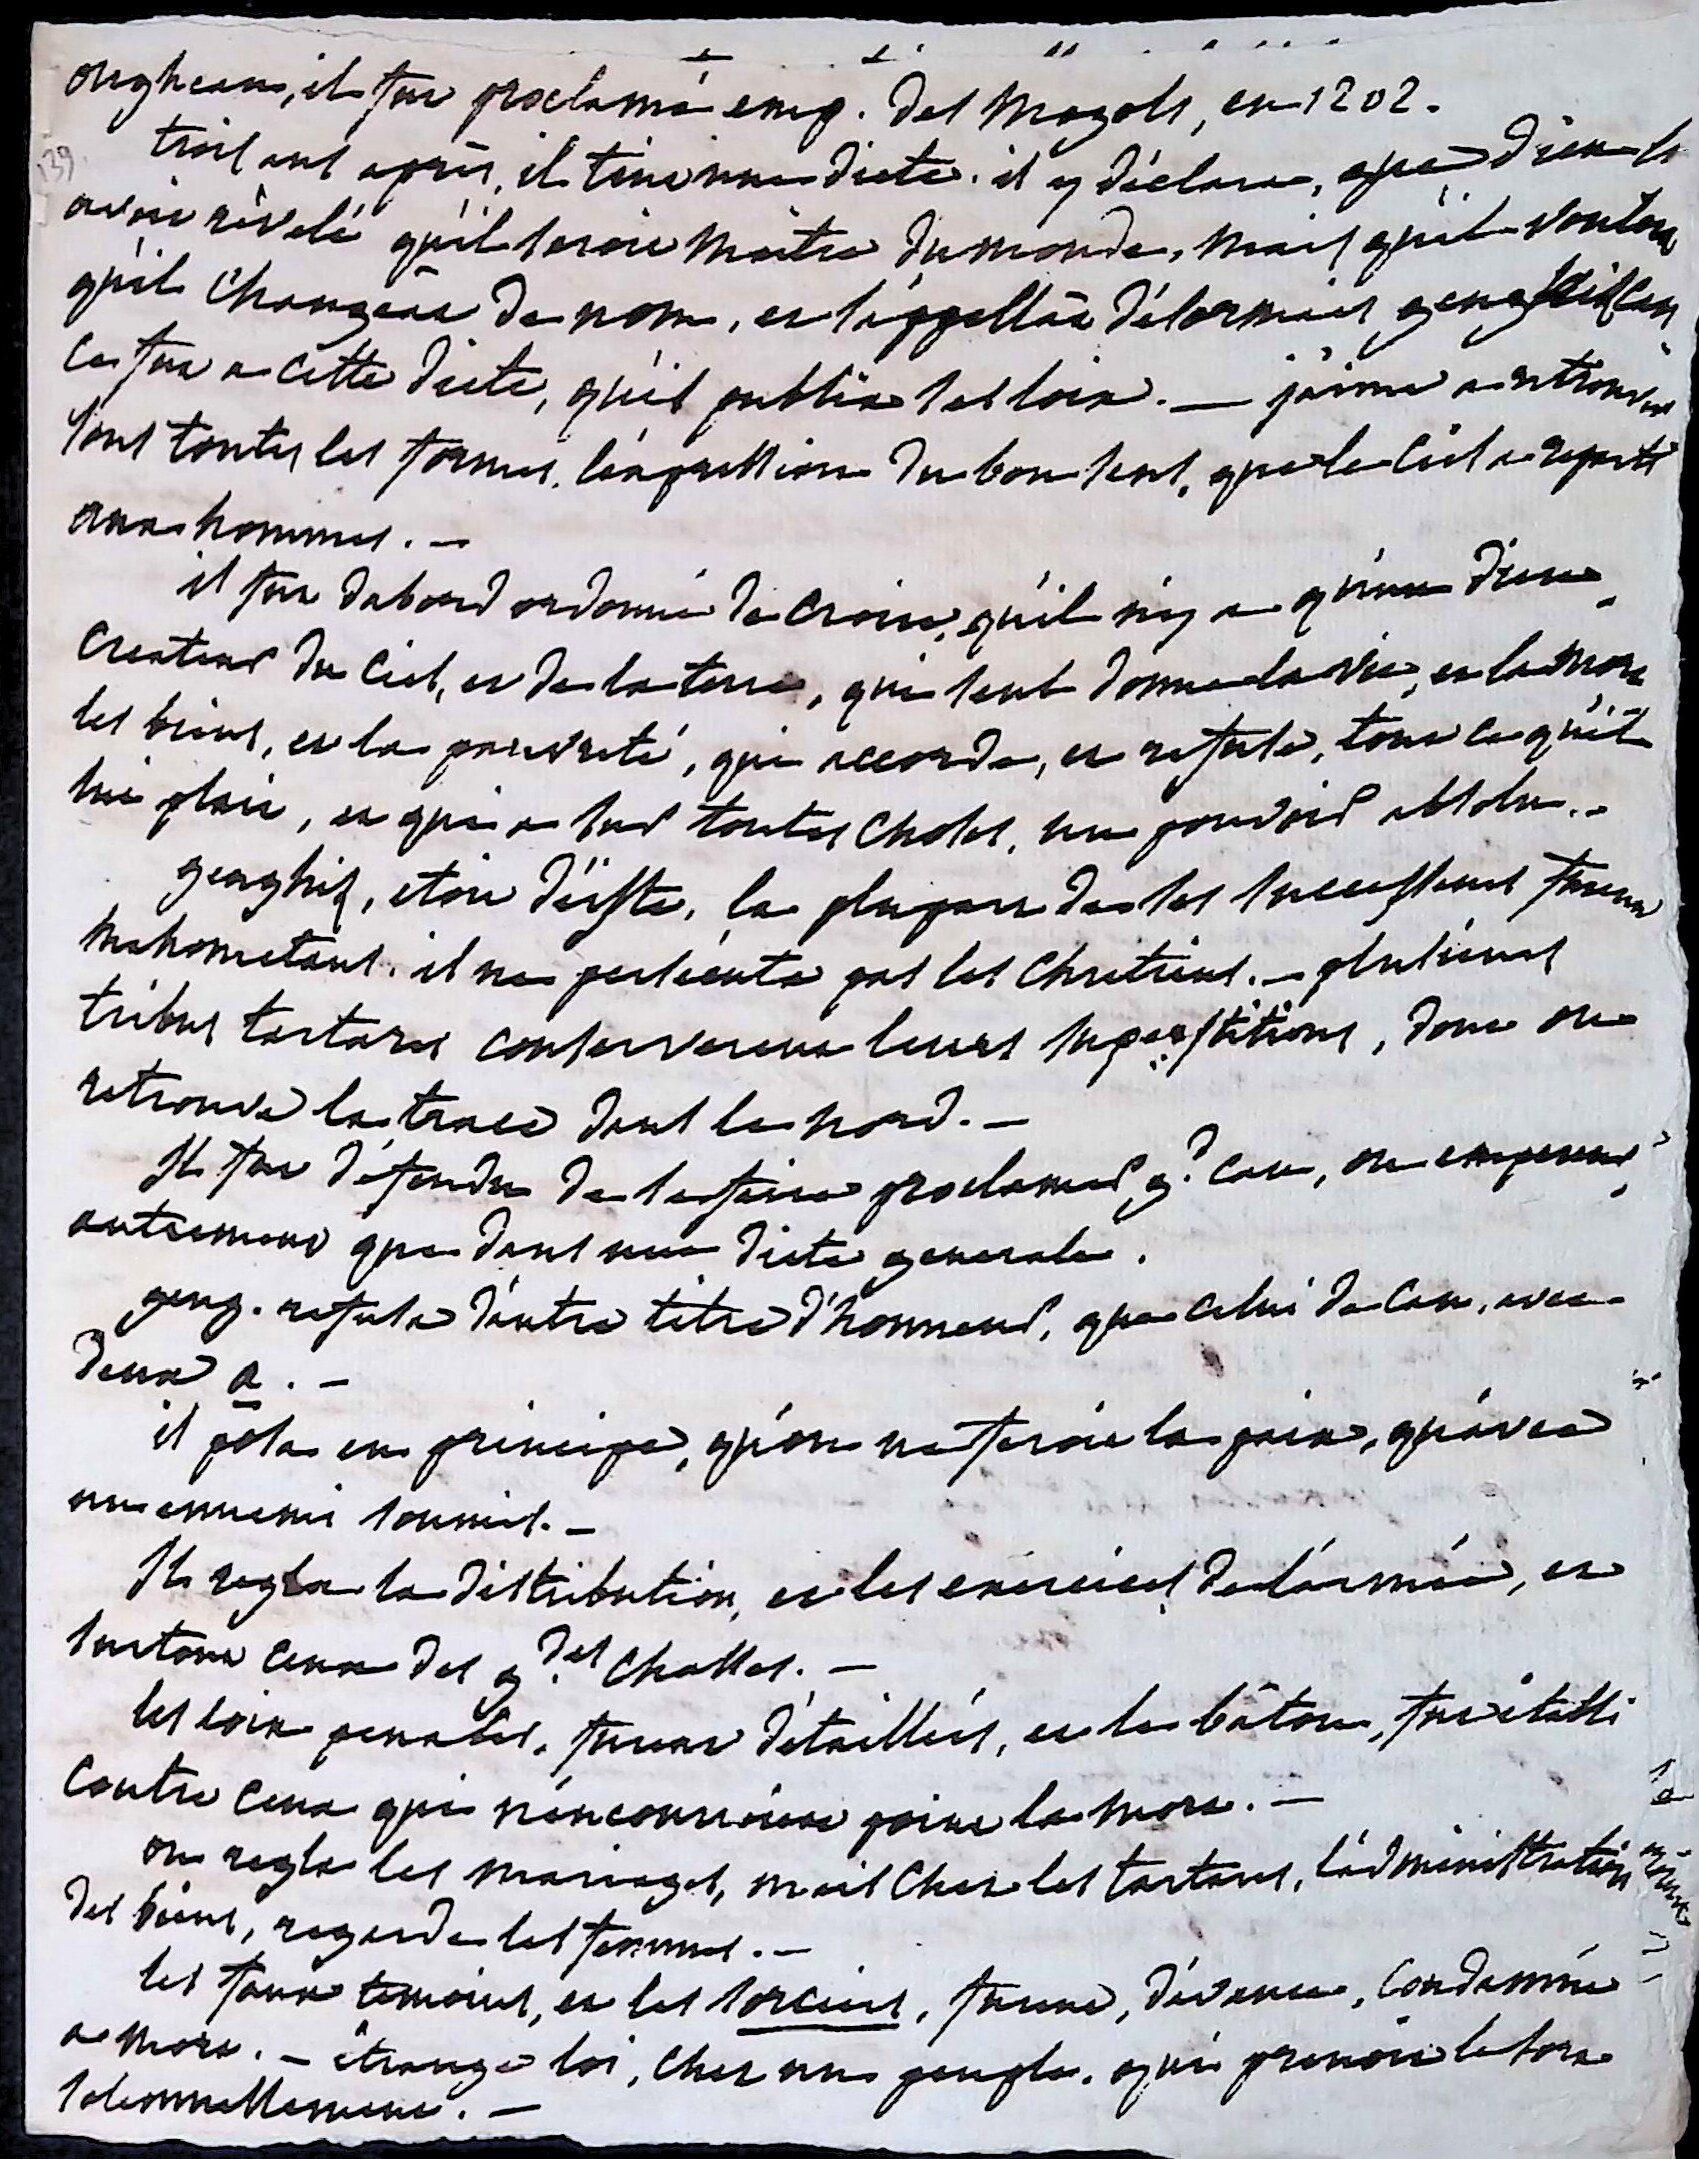 onghcan, il fut proclamé emp. des Mogols, en 1202.
trois ans après, il tint une diete. il y déclara, que dieu lui
avoit révélé qu'il seroit maitre du monde, mais qu'il vouloit
qu'il changeât de nom, et s'appellât désormais genghiscan
ce fut a cette diete, qu'il publia ses loix. — j'aime a retrouver
sous toutes les formes, l'expression du bon sens, que le ciel a reparti
aux hommes. —
il fut dabord ordonné de croire, qu'il n'y a qu'un dieu,
createur du ciel, et de la terre, qui seul donne la vie, et la mort
les biens, et la pauvreté, qui accorde, et refuse, tout ce qu'il
lui plait, et qui a sur toutes choses, un pouvoir absolu. -
genghis, etoit déiste, la plupart de ses successeurs furent
mahometans. il ne persécuta pas les chretiens. — plusieurs
tribus tartares conserverent leurs superstitions, dont on
retrouve la trace dans le nord. —
Il fut défendu de se faire proclamer gd. can, ou empereur,
autrement que dans une diete generale.
geng. refusa d'autre titre d'honneur, que celui de can, avec
deux a. —
il posa en principe, qu'on ne feroit la paix, qu'avec
un ennemi soumis. —
Il regla la distribution, et les exercices de l'armée, et
surtout ceux des gdes. chasses. —
les loix penales, furent détaillées, et le bâton, fut établi
contre ceux qui n'encourroient point la mort. —
on regla les mariages, mais chez les tartares, l'administration
des biens, regarde les femmes. —
les faux temoins, et les sorciers, furent, devant, condamnés
a mort. — étrange loi, chez un peuple, qui prenoit le sort
solemnellement. —